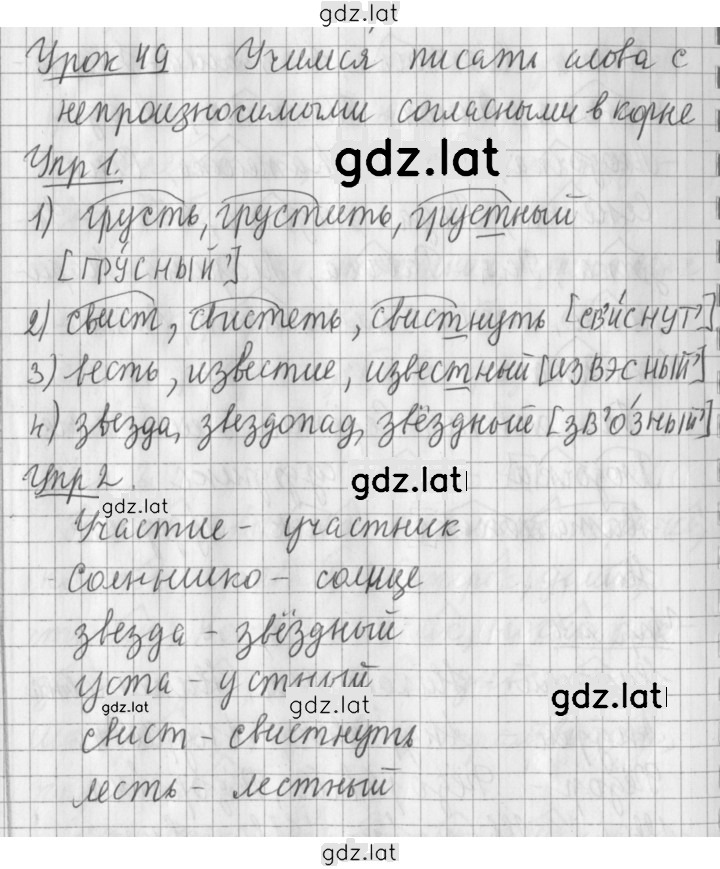 gdz.lat
Урок 49 Учимся писать слова с
непроизносимыми согласными в корне
gdz.lat
Упр 1.
1) грусть, грустить, грустный
[грусный']
2) свист, свистеть, свистнуть [св'иснут']
3) весть, известие, известный [извэсный']
4) звезда, звездопад, звёздный [зв'озный']
Упр 2.
gdz.lat
gdz.lat
Участие - участник
Солнышко - солнце
звезда - звёздный
уста - устный
gdz.lat
gdz.lat
gdz.lat
свист - свистнуть
лесть - лестный
gdz.lat